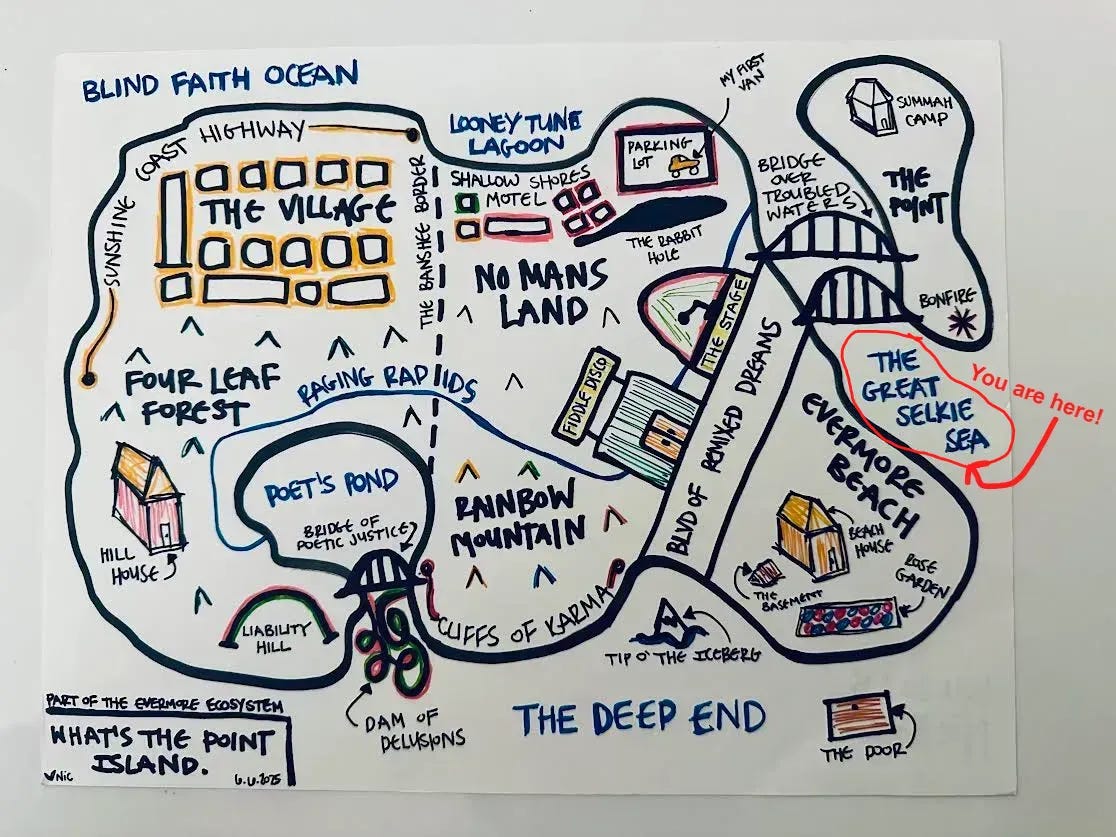 BLIND FAITH OCEAN
SUNSHINE COAST HIGHWAY
THE VILLAGE
THE BANSHEE BORDER
LOONEY TUNE
LAGOON
SHALLOW SHORES
MOTEL
PARKING
LOT
MY FIRST
VAN
THE RABBIT
HOLE
NO MANS
LAND
BRIDGE
OVER
TROUBLED
WATERS
SUMMAH
CAMP
THE
POINT
BONFIRE
THE STAGE
FIDDLE DISCO
BLVD OF REMIXED DREAMS
THE
GREAT
SELKIE
SEA
You are here!
EVERMORE
BEACH
BEACH
HOUSE
ROSE
GARDEN
THE
BASEMENT
FOUR LEAF
FOREST
RAGING RAPIDS
POET'S POND
BRIDGE OF
POETIC JUSTICE
RAINBOW
MOUNTAIN
HILL
HOUSE
LIABILITY
HILL
CLIFFS OF KARMA
TIP O' THE ICEBERG
DAM OF
DELUSIONS
THE DEEP END
THE DOOR
PART OF THE EVERMORE ECOSYSTEM
WHAT'S THE POINT
ISLAND.
NIC 6.6.2025